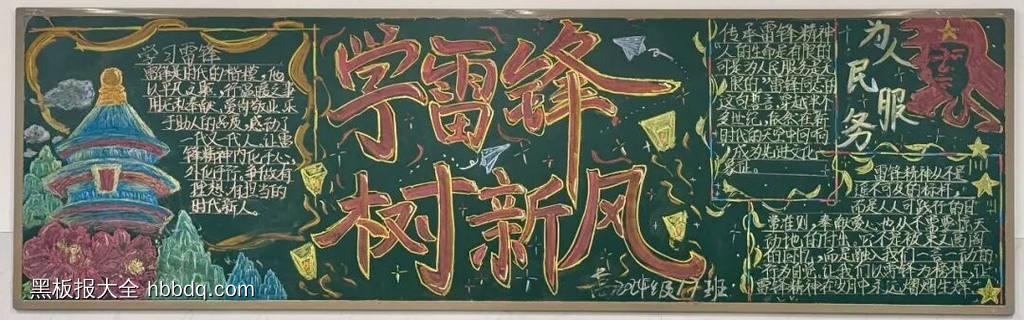 学习雷锋
雷锋是时代的楷模，他
以平凡之躯，行温暖之事
用无私奉献、爱岗敬业、乐
于助人的品质，感动了
一代又一代人，让雷
锋精神内化于心、
外化于行，争做有
理想、有担当的
时代新人。
学雷锋
树新风
2024级17班
传承雷锋精神
人的生命是有限的
可是为人民服务是无
限的，雷锋的
这句
多世纪，依然在新
时代的天空中回响
成为先进文化
表征。
为人民服务
雷锋精神从不是
遥不可及的标杆，
而是人人可践行的日
常准则，奉献爱心也从不需要惊天
动地的付出，它不是被束之高阁
的回忆，而是融入我们一言一行的
行为自觉，让我们以雷锋为榜样，让
雷锋精神在岁月中永远熠熠生辉。
黑板报大全 hbbdq.com